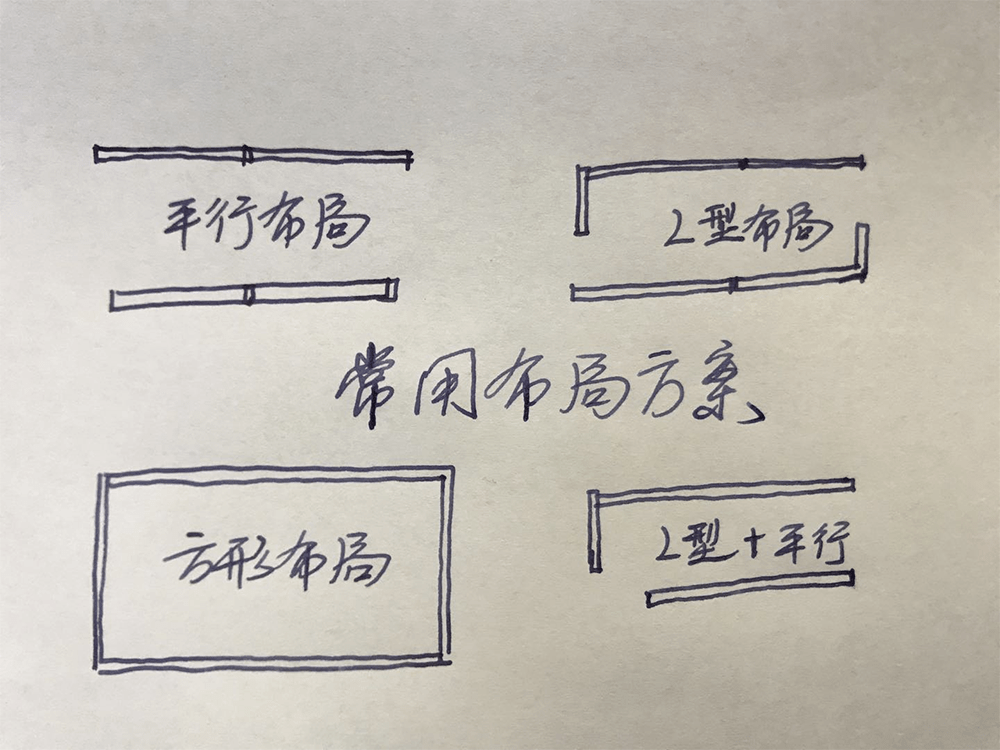 平行布局
L型布局
常用布局方案
方形布局
L型+平行